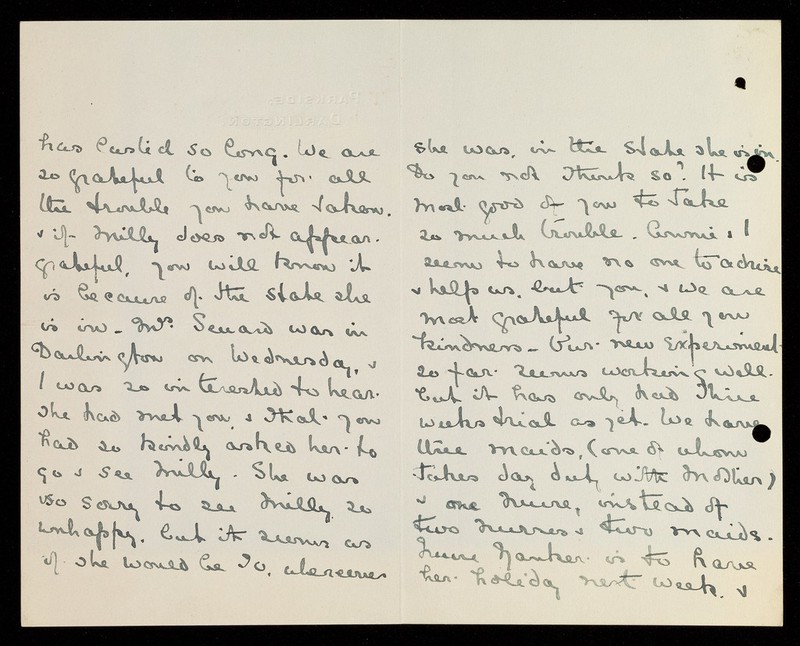 has lasted so long. We are
so grateful to you for all
the trouble you have taken.
& if Milly does not appear
grateful, you will know it
is because of the state she
is in - Mrs. Seward was in
Darlington on Wednesday, &
I was so interested to hear
she had met you, & that you
had so kindly asked her to
go & see Milly. She was
so sorry to see Milly so
unhappy. but it seems as
if she would be so, wherever
PARKSIDE
DARLINGTON.
she was, in the state she is in.
Do you not think so? It is
most good of you to take
so much trouble. Connie & I
seem to have no one to advise
& help us, but you, & we are
most grateful for all you
kindness - Our new experiment
so far seems working well.
but it has only had three
weeks trial as yet. We have
three maids, (one of whom
takes day duty with Mother)
& one nurse, instead of
two nurses & two maids.
Nurse is to have
her holiday next week. &